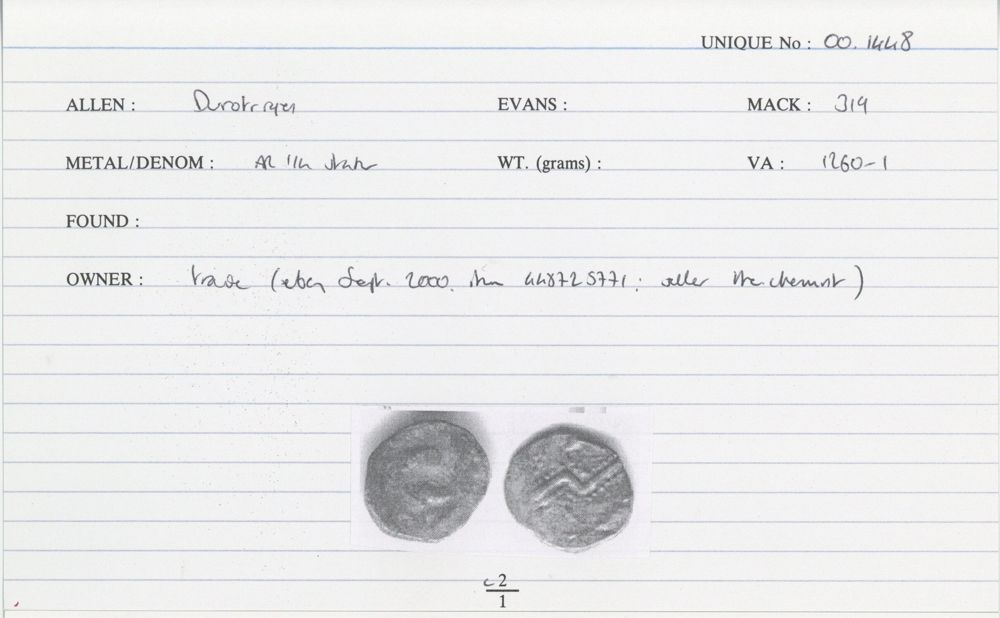 UNIQUE No : 00.1448
ALLEN : Durotriges EVANS : MACK : 319
METAL/DENOM : AR 1/4 stater WT. (grams) : VA : 1260-1
FOUND :
OWNER : trade (ebay Sept. 2000. item 448725771 : seller the.chemist)
c2
1